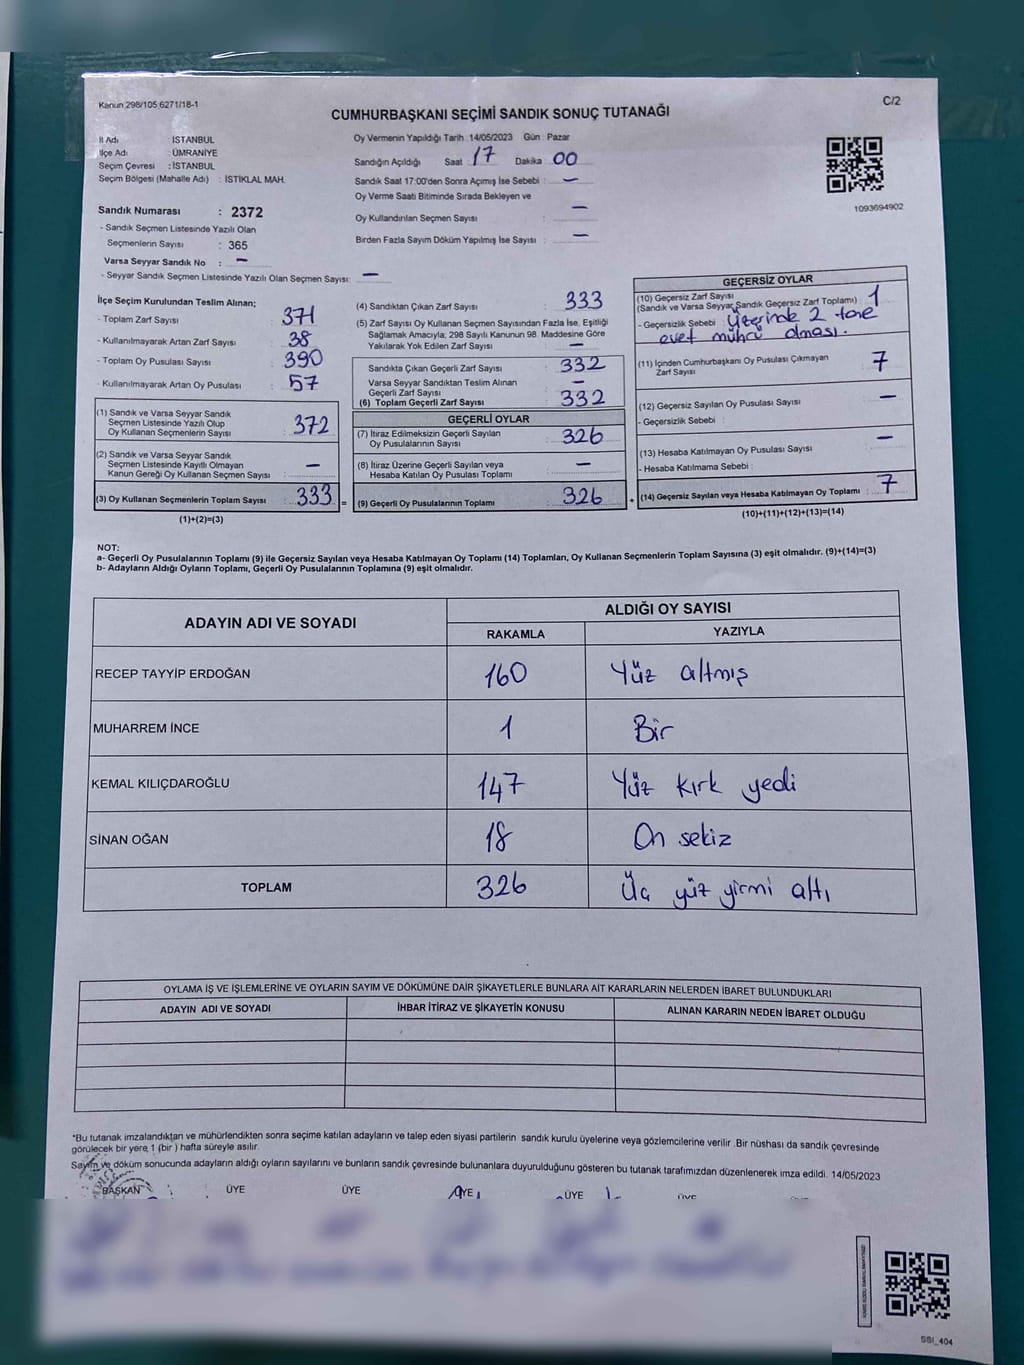 Kanun 298/105 6271/18-1
C/2
CUMHURBAŞKANI SEÇİMİ SANDIK SONUÇ TUTANAĞI
İl Adı : İSTANBUL
İlçe Adı : ÜMRANİYE
Seçim Çevresi : İSTANBUL
Seçim Bölgesi (Mahalle Adı) : İSTİKLAL MAH.
Oy Vermenin Yapıldığı Tarih 14/05/2023 Gün : Pazar
Sandığın Açıldığı Saat 17 Dakika 00
Sandık Saat 17:00'den Sonra Açımış İse Sebebi : –
Oy Verme Saati Bitiminde Sırada Bekleyen ve
Oy Kullandırılan Seçmen Sayısı : –
Birden Fazla Sayım Döküm Yapılmış İse Sayısı : –
1093694902
Sandık Numarası : 2372
- Sandık Seçmen Listesinde Yazılı Olan
Seçmenlerin Sayısı : 365
Varsa Seyyar Sandık No : –
- Seyyar Sandık Seçmen Listesinde Yazılı Olan Seçmen Sayısı: –
İlçe Seçim Kurulundan Teslim Alınan;
- Toplam Zarf Sayısı : 371
- Kullanılmayarak Artan Zarf Sayısı : 38
- Toplam Oy Pusulası Sayısı : 390
- Kullanılmayarak Artan Oy Pusulası : 57
(1) Sandık ve Varsa Seyyar Sandık
Seçmen Listesinde Yazılı Olup
Oy Kullanan Seçmenlerin Sayısı : 372
(2) Sandık ve Varsa Seyyar Sandık
Seçmen Listesinde Kayıtlı Olmayan
Kanun Gereği Oy Kullanan Seçmen Sayısı : –
(3) Oy Kullanan Seçmenlerin Toplam Sayısı : 333 =
(1)+(2)=(3)
(4) Sandıktan Çıkan Zarf Sayısı : 333
(5) Zarf Sayısı Oy Kullanan Seçmen Sayısından Fazla İse, Eşitliği
Sağlamak Amacıyla; 298 Sayılı Kanunun 98. Maddesine Göre
Yakılarak Yok Edilen Zarf Sayısı : –
Sandıkta Çıkan Geçerli Zarf Sayısı : 332
Varsa Seyyar Sandıktan Teslim Alınan
Geçerli Zarf Sayısı : –
(6) Toplam Geçerli Zarf Sayısı : 332
GEÇERLİ OYLAR
(7) İtiraz Edilmeksizin Geçerli Sayılan
Oy Pusulalarının Sayısı : 326
(8) İtiraz Üzerine Geçerli Sayılan veya
Hesaba Katılan Oy Pusulası Toplamı : –
(9) Geçerli Oy Pusulalarının Toplamı : 326 +
GEÇERSİZ OYLAR
(10) Geçersiz Zarf Sayısı
(Sandık ve Varsa Seyyar Sandık Geçersiz Zarf Toplamı) : 1
- Geçersizlik Sebebi : Üzerinde 2 tane
evet mührü olması.
(11) İçinden Cumhurbaşkanı Oy Pusulası Çıkmayan
Zarf Sayısı : 7
(12) Geçersiz Sayılan Oy Pusulası Sayısı : –
- Geçersizlik Sebebi :
(13) Hesaba Katılmayan Oy Pusulası Sayısı : –
- Hesaba Katılmama Sebebi :
(14) Geçersiz Sayılan veya Hesaba Katılmayan Oy Toplamı : 7
(10)+(11)+(12)+(13)=(14)
NOT:
a- Geçerli Oy Pusulalarının Toplamı (9) ile Geçersiz Sayılan veya Hesaba Katılmayan Oy Toplamı (14) Toplamları, Oy Kullanan Seçmenlerin Toplam Sayısına (3) eşit olmalıdır. (9)+(14)=(3)
b- Adayların Aldığı Oyların Toplamı, Geçerli Oy Pusulalarının Toplamına (9) eşit olmalıdır.
ADAYIN ADI VE SOYADI
ALDIĞI OY SAYISI
RAKAMLA YAZIYLA
RECEP TAYYİP ERDOĞAN 160 Yüz altmış
MUHARREM İNCE 1 Bir
KEMAL KILIÇDAROĞLU 147 Yüz kırk yedi
SİNAN OĞAN 18 On sekiz
TOPLAM 326 Üç yüz yirmi altı
OYLAMA İŞ VE İŞLEMLERİNE VE OYLARIN SAYIM VE DÖKÜMÜNE DAİR ŞİKAYETLERLE BUNLARA AİT KARARLARIN NELERDEN İBARET BULUNDUKLARI
ADAYIN ADI VE SOYADI İHBAR İTİRAZ VE ŞİKAYETİN KONUSU ALINAN KARARIN NEDEN İBARET OLDUĞU
*Bu tutanak imzalandıktan ve mühürlendikten sonra seçime katılan adayların ve talep eden siyasi partilerin sandık kurulu üyelerine veya gözlemcilerine verilir .Bir nüshası da sandık çevresinde
görülecek bir yere 1 (bir ) hafta süreyle asılır.
Sayım ve döküm sonucunda adayların aldığı oyların sayılarını ve bunların sandık çevresinde bulunanlara duyurulduğunu gösteren bu tutanak tarafımızdan düzenlenerek imza edildi. 14/05/2023
BAŞKAN ÜYE ÜYE ÜYE ÜYE ÜYE
SSI_404